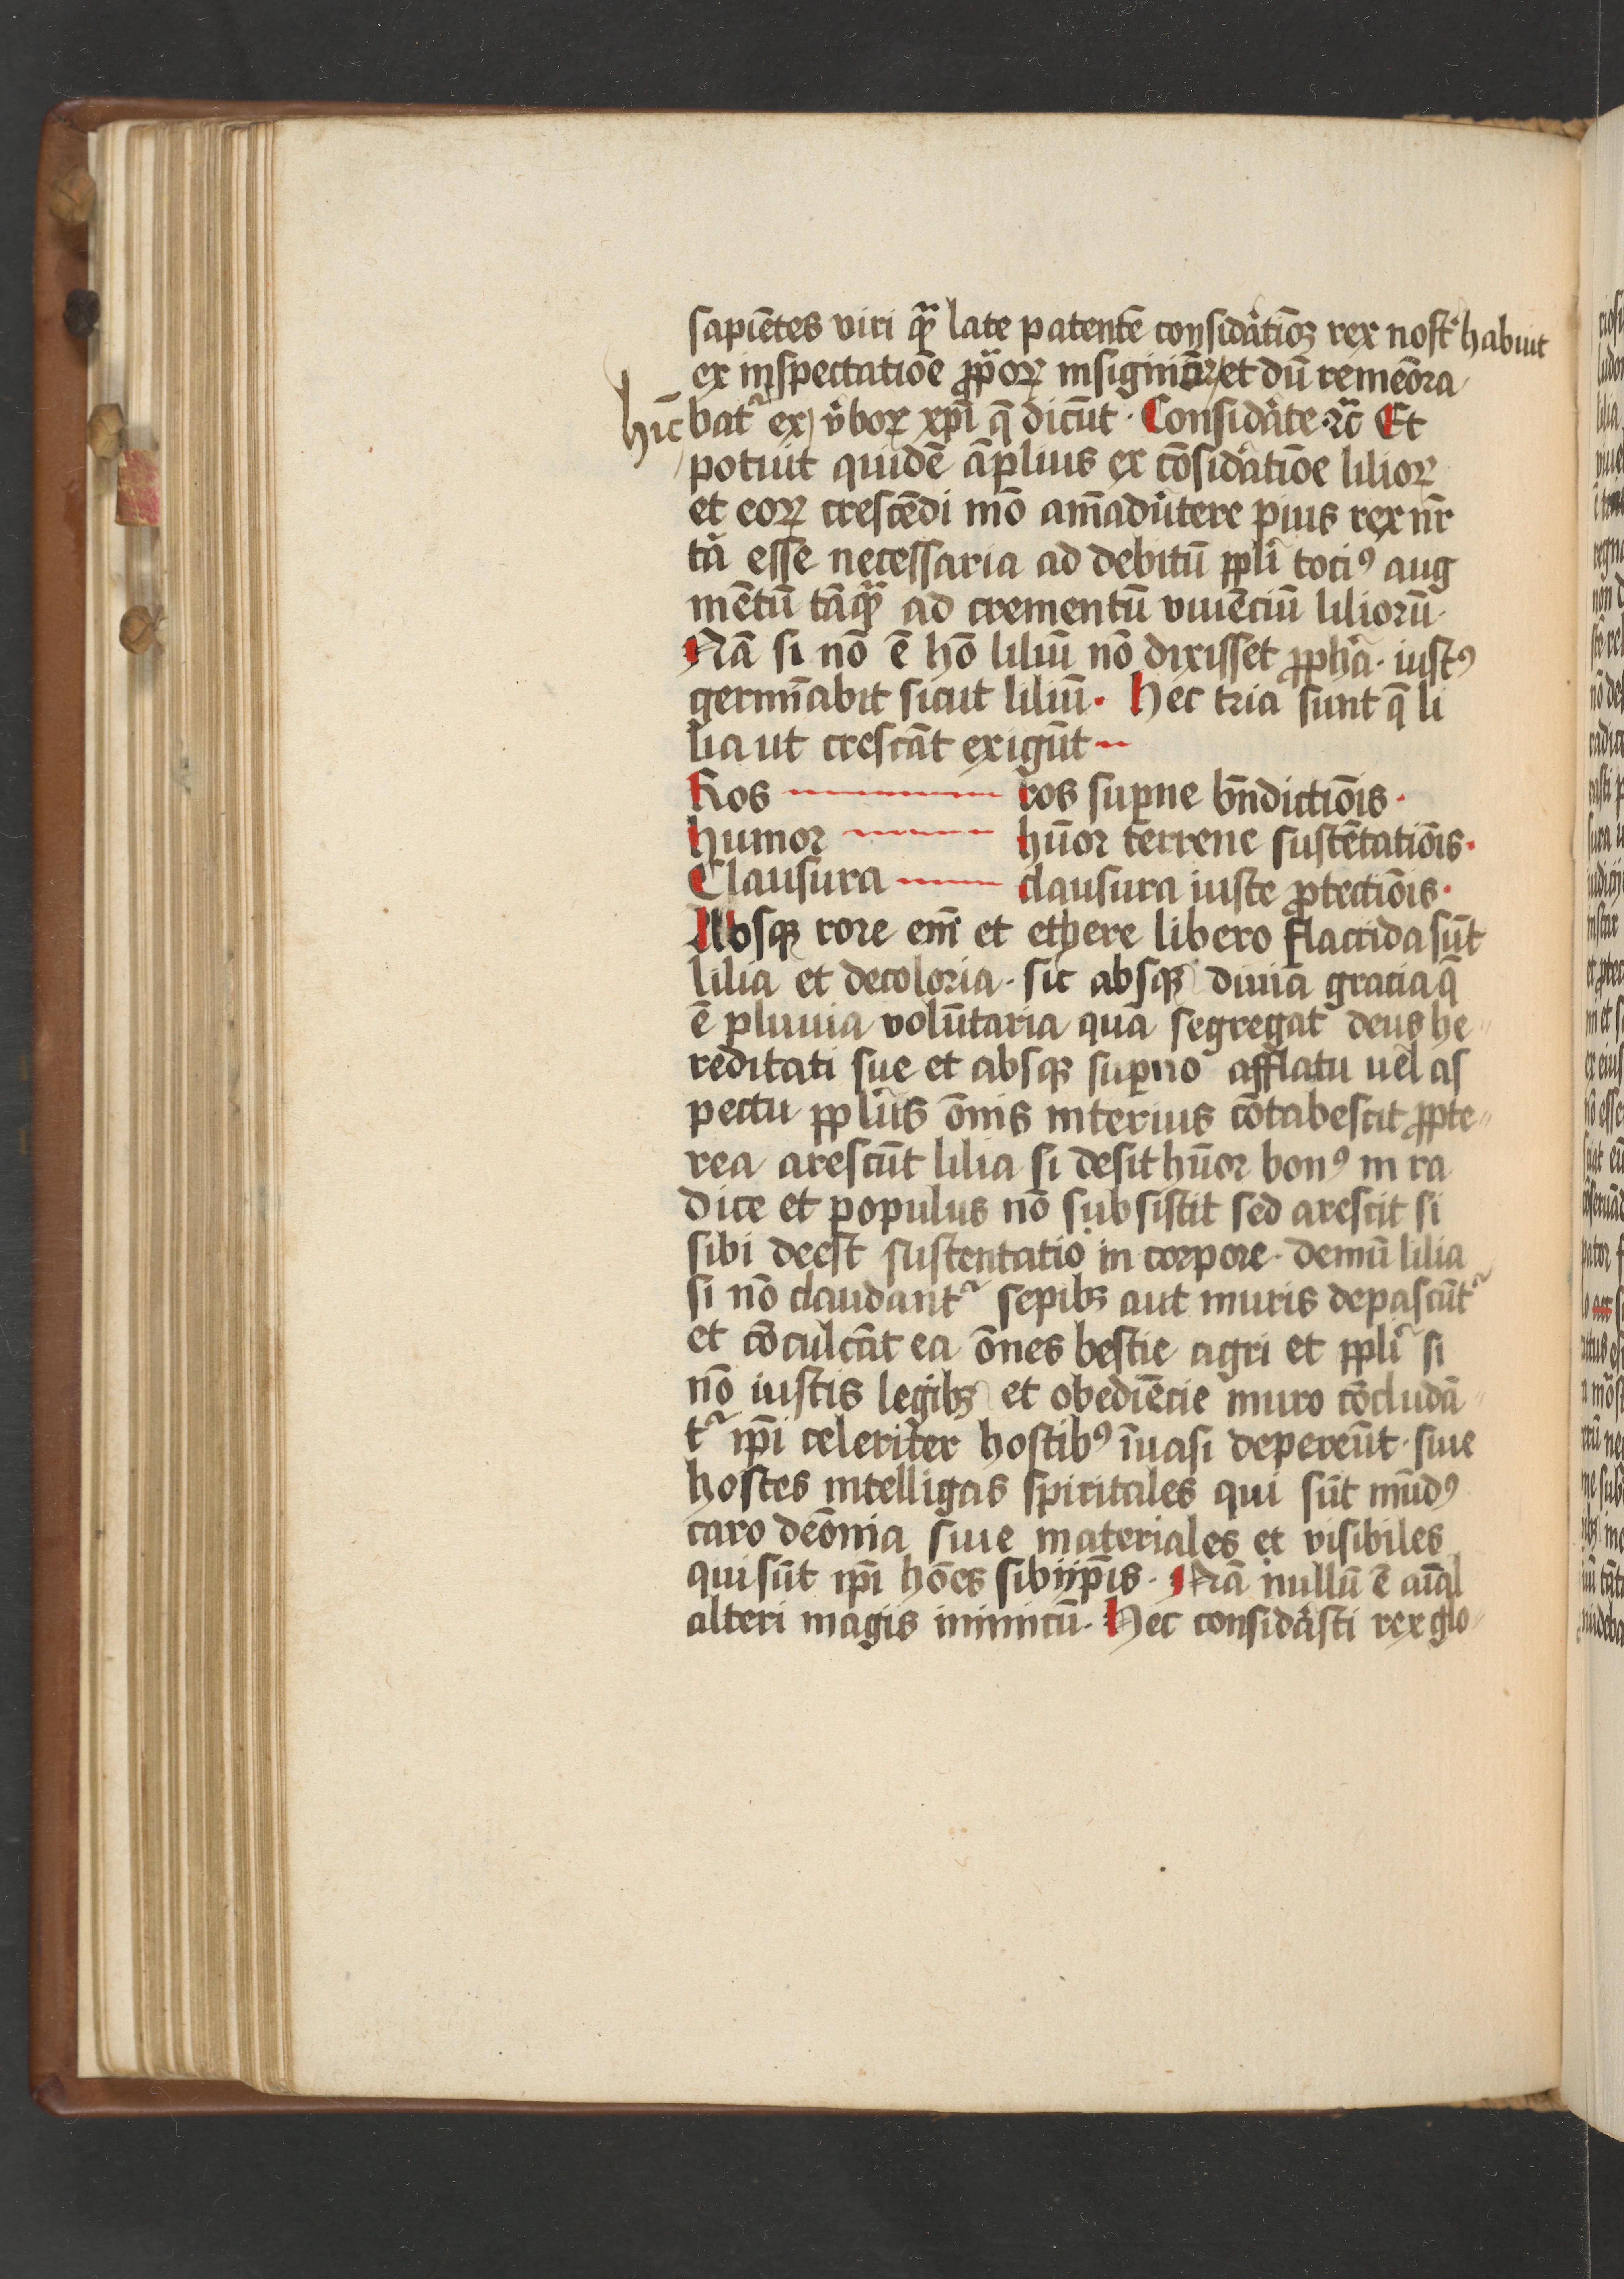 sapiētes viri qᷓꝫ late patentē considātiōꝫ rex nostͬ habuit
ex inspectatiōe ꝓpͥoꝝ insigniū et dū remēora
hīc batᷣ ex v̉boꝝ xp̄i q̄ dicūt · Considāte ⁊c̄ Et
potuit quidē āplius ex cōsidātiōe lilioꝝ
et eoꝝ crescēdi mō am̄adūtere pius rex nr̄
tͥa esse necessaria ad debitū ppl̄i tociꝰ aug
mētū tāqᷓꝫ ad crementū viuēciū liliorū ·
Nā si nō ē hō liliū nō dixisset ꝓph̄a · iustꝰ
germīabit sicut liliū · Hec tria sunt q̄ li
lia ut crescāt exigūt
Ros ros sup̄ne bn̄dictiōis ·
Humor hūor terrene sustētatiōis ·
Clausura clausura iuste ꝓtectiōis ·
Absqꝫ rore em̄ et ethere libero flaccida sūt
lilia et decoloria · sic absqꝫ diuīa gracia q̄
ē pluuia volūtaria quā segregat deus he〃
reditati sue et absqꝫ sup̄no afflatu uel as
pectu ppl̄us ōnis interius cōtabescit ꝓpte〃
rea arescūt lilia si desit hūor bonꝰ in ra
dice et populus nō subsistit sed arescit si
sibi deest sustentatio in corpore · demū lilia
si nō claudantᷣ sepibꝫ aut muris depascūtᷣ
et cōculcāt ea ōnes bestie agri et ppl̄i si
nō iustis legibꝫ et obediēcie muro cōcludā〃
tᷣ ip̄i celeriter hostibꝰ īuasi depereūt · siue
hostes intelligas spiritales qui sūt mūdꝰ
caro deōnia siue materiales et visibiles
qui sūt ip̄i hōes sibiip̄is · Nā nullū ē aīal
alteri magis inimicū · Hec considāsti rex glo〃